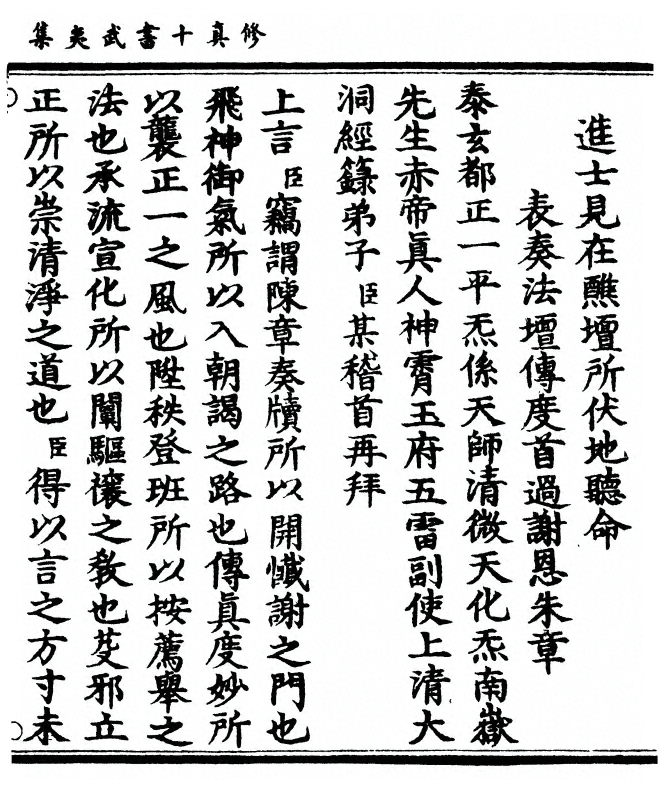 修真十書武夷集
進士見在醮壇所伏地聽命
表奏法壇傳度首過謝恩朱章
泰玄都正一平炁係天師清微天化炁南嶽
先生赤帝眞人神霄玉府五雷副使上清大
洞經籙弟子臣某稽首再拜
上言臣竊謂陳章奏牘所以開懺謝之門也
飛神御氣所以入朝謁之路也傳眞度妙所
以襲正一之風也陞秩登班所以按薦舉之
法也承流宣化所以闡驅禳之教也芟邪立
正所以崇清淨之道也臣得以言之方寸未